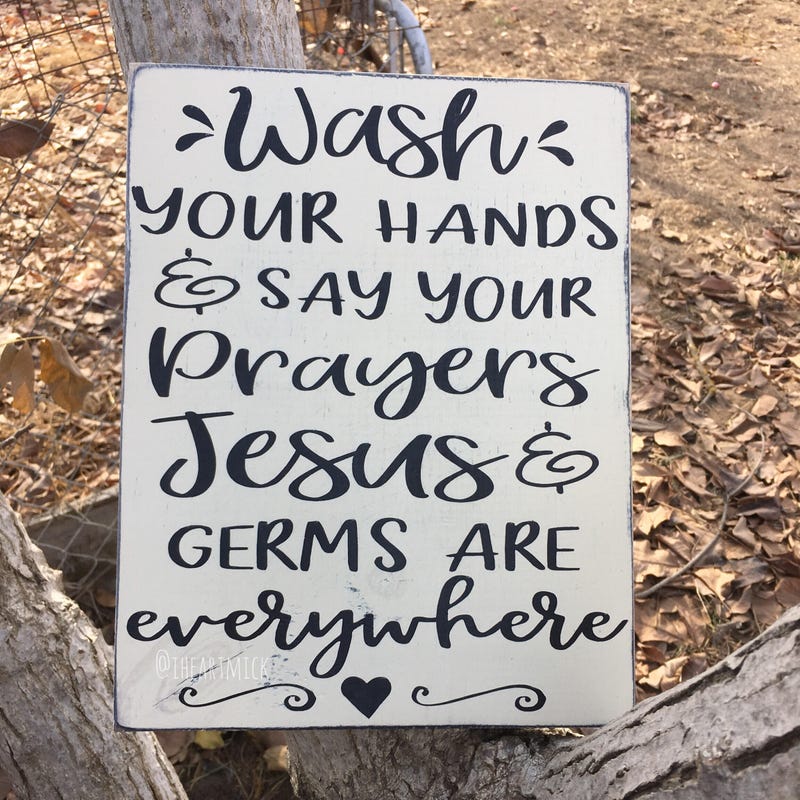 Wash
YOUR HANDS
& SAY YOUR
Prayers
Jesus &
GERMS ARE
everywhere
@IHEARTMICK